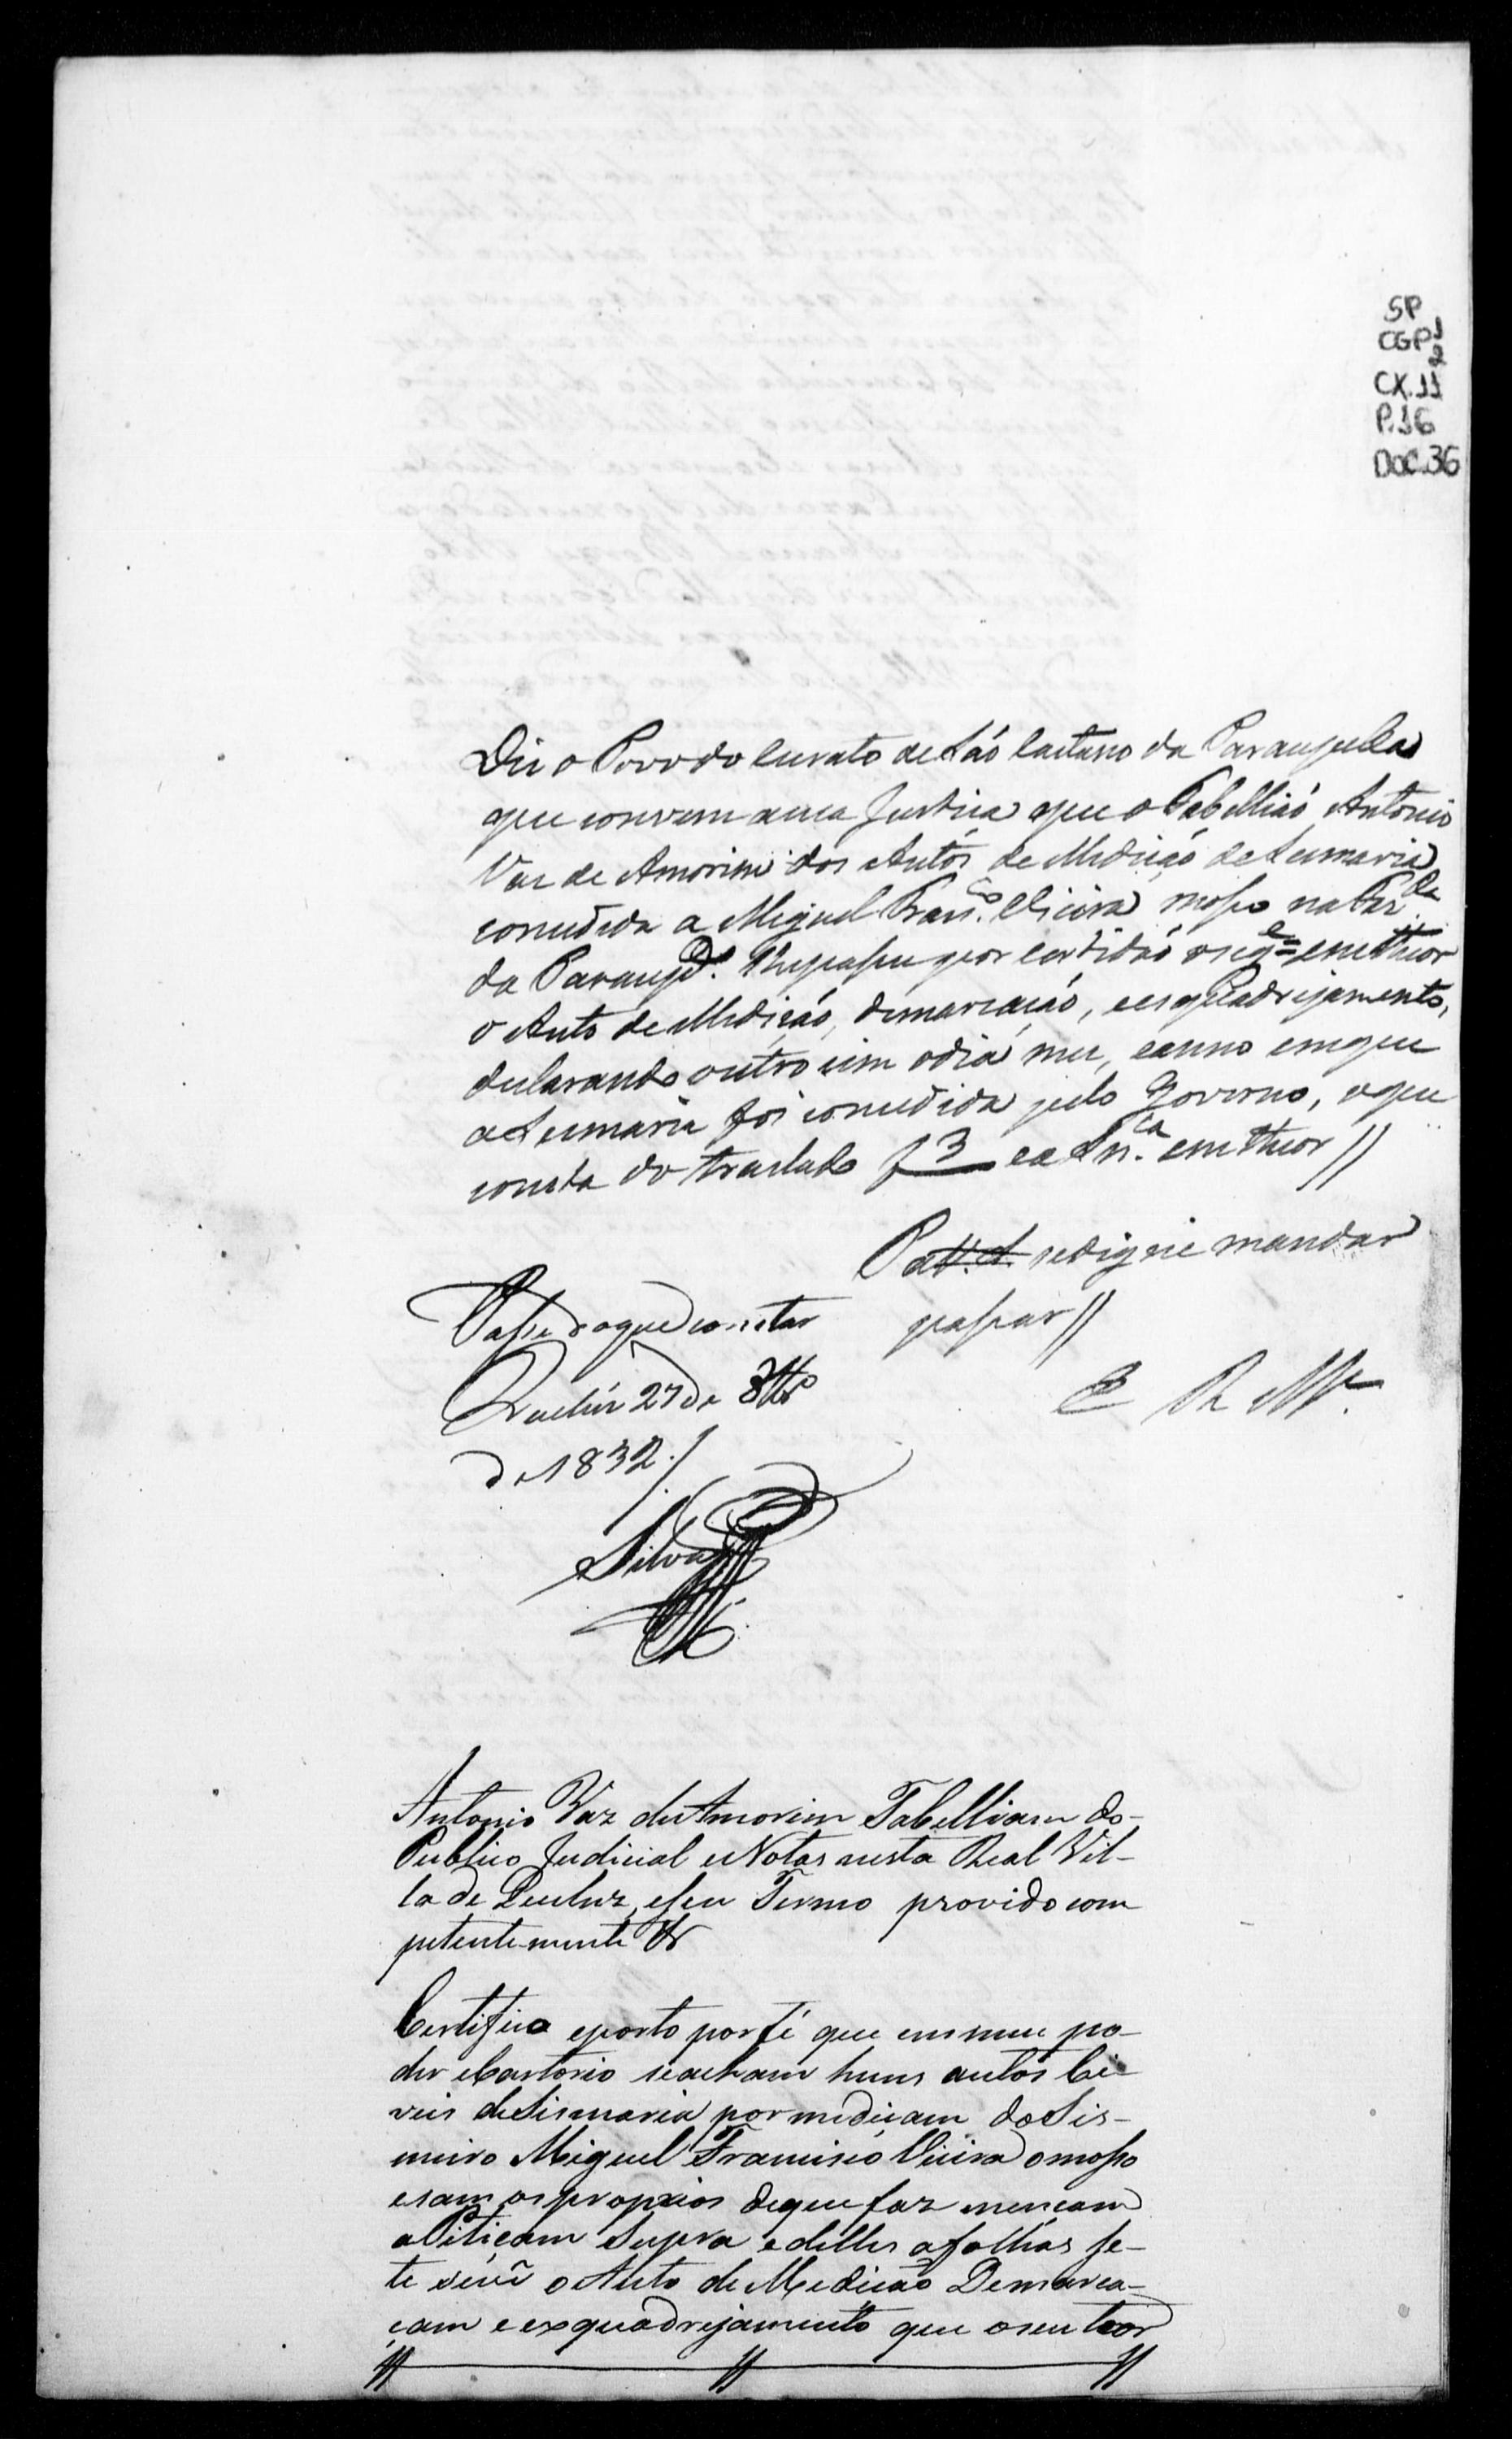 SP
CGP 1
2
CX.11
P.16
DOC.36
Diz o Povo do Curato de Saó Caetano da Paraupeba
que convem a sua Justiça que o Tabelliaó Antonio
Vaz de Amorim dos Autos de Mediçaó de Sesmaria
concedida a Miguel Fran.co Vieira mosso na Par.
da Paraup.ba lhe passe por certidaó o seg.e em theor
o Auto de Mediçaó, demarcaçaó, e esquadrejamento,
declarando outro sim o dia mez, e anno em que
a Sesmaria foi concedida pelo Governo, o que
consta do traslado f 3 e a Sn.ca em theor //
P a V. S. se digne mandar
passar //
E R Mce.
Passe do que constar
Queluz 27 de 8bro
de 1832 /
Silva
Antonio Vaz de Amorim Tabelliam do
Publico Judicial e Notas nesta Real Vil-
la de Queluz, e seu Termo provido com
petentemente &
Certifico e porto por fé que em meu po-
der e Cartorio se acham huns autos Ci-
veis de Sismaria por mediçam do Sis-
meiro Miguel Francisco Vieira o mosso
e sam os proprios de que faz mençam
a Petiçam Supra e delles a folhas se-
te se vê o Auto de Mediçaó Demarca-
çam e esquadrejamento que o seu teor